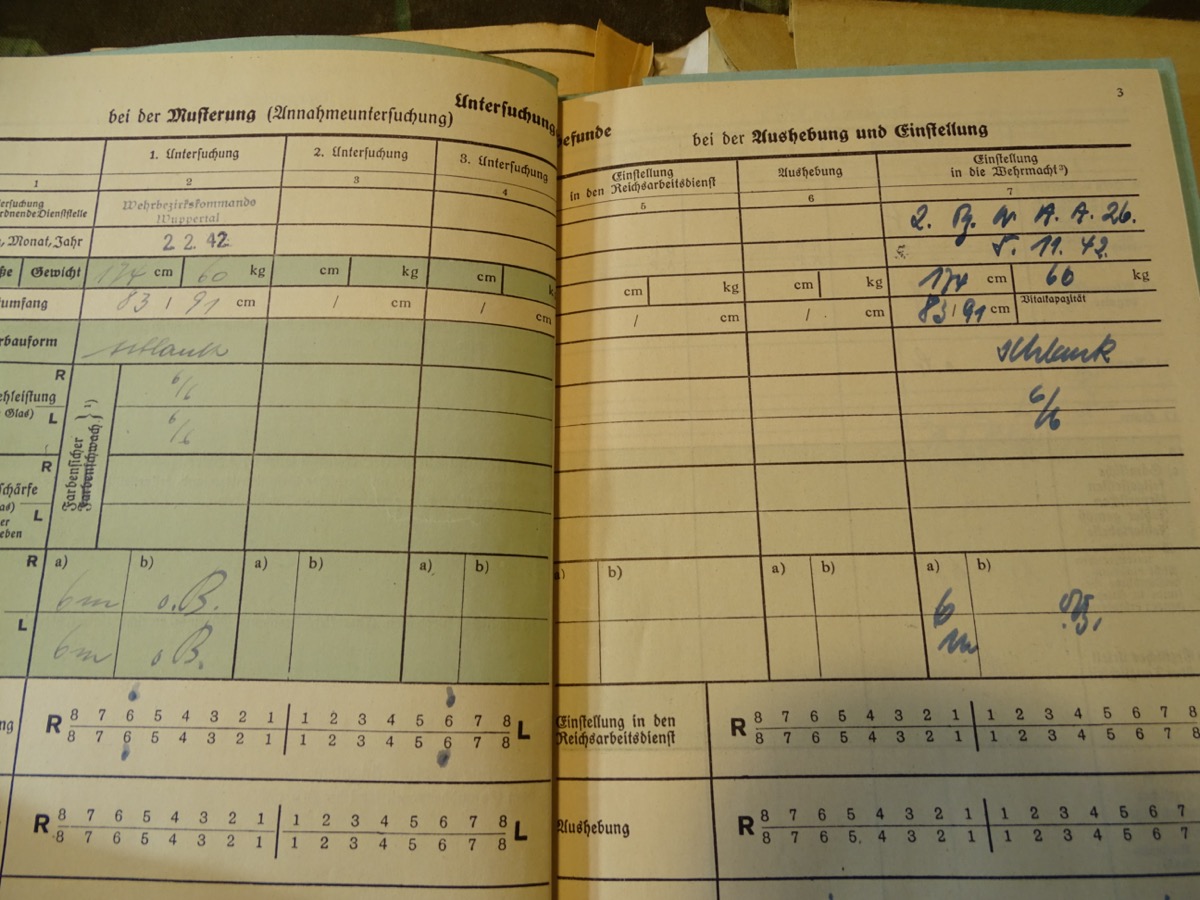 3
Untersuchung
befunde
bei der Musterung (Annahmeuntersuchung)
bei der Aushebung und Einstellung
1. Untersuchung
2. Untersuchung
3. Untersuchung
Einstellung
in den Reichsarbeitsdienst
Aushebung
Einstellung
in die Wehrmacht³)
1 2 3 4 5 6 7
ersuchung
rdnende Dienststelle
Wehrbezirkskommando
Wuppertal
2. A. A. 26.
, Monat, Jahr
2 2. 42
5. 11. 42.
ße Gewicht 174 cm 60 kg cm kg cm k
cm kg cm kg 174 cm 60 kg
umfang 83 / 91 cm / cm / cm
/ cm / cm 83/91 cm Vitalkapazität
rbauform schlank
schlank
ehleistung
Glas)
R 6/6
L 6/6
6/6
Farbensicher
Farbenschwach. } ¹)
R
chärfe
as)
er
eben
L
R a) b) a) b) a) b)
a) b) a) b) a) b)
6m o.B.
L 6m o B.
6
m
o.B.
ng
R 8 7 6 5 4 3 2 1 1 2 3 4 5 6 7 8 L
8 7 6 5 4 3 2 1 1 2 3 4 5 6 7 8
Einstellung in den
Reichsarbeitsdienst
R 8 7 6 5 4 3 2 1 1 2 3 4 5 6 7 8
8 7 6 5 4 3 2 1 1 2 3 4 5 6 7 8
R 8 7 6 5 4 3 2 1 1 2 3 4 5 6 7 8 L
8 7 6 5 4 3 2 1 1 2 3 4 5 6 7 8
Aushebung
R 8 7 6 5 4 3 2 1 1 2 3 4 5 6 7
8 7 6 5. 4 3 2 1 1 2 3 4 5 6 7